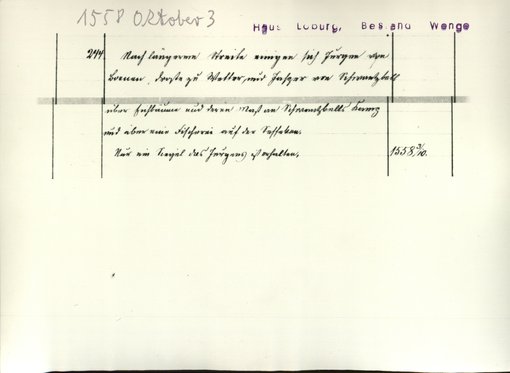 1558 Oktober 3
Haus Loburg, Bestand Wenge
244 Nach längerem Streite einigen sich Jürgen von
Boenen, Droste zu Wetter, und Jasper von Schwartzkoll
über Eichbäume und deren Mast an Schwartzkolls Kamp
und über eine Fischerei auf der Seseken.
Nur ein Siegel des Jürgens ist erhalten. 1558 3/10.